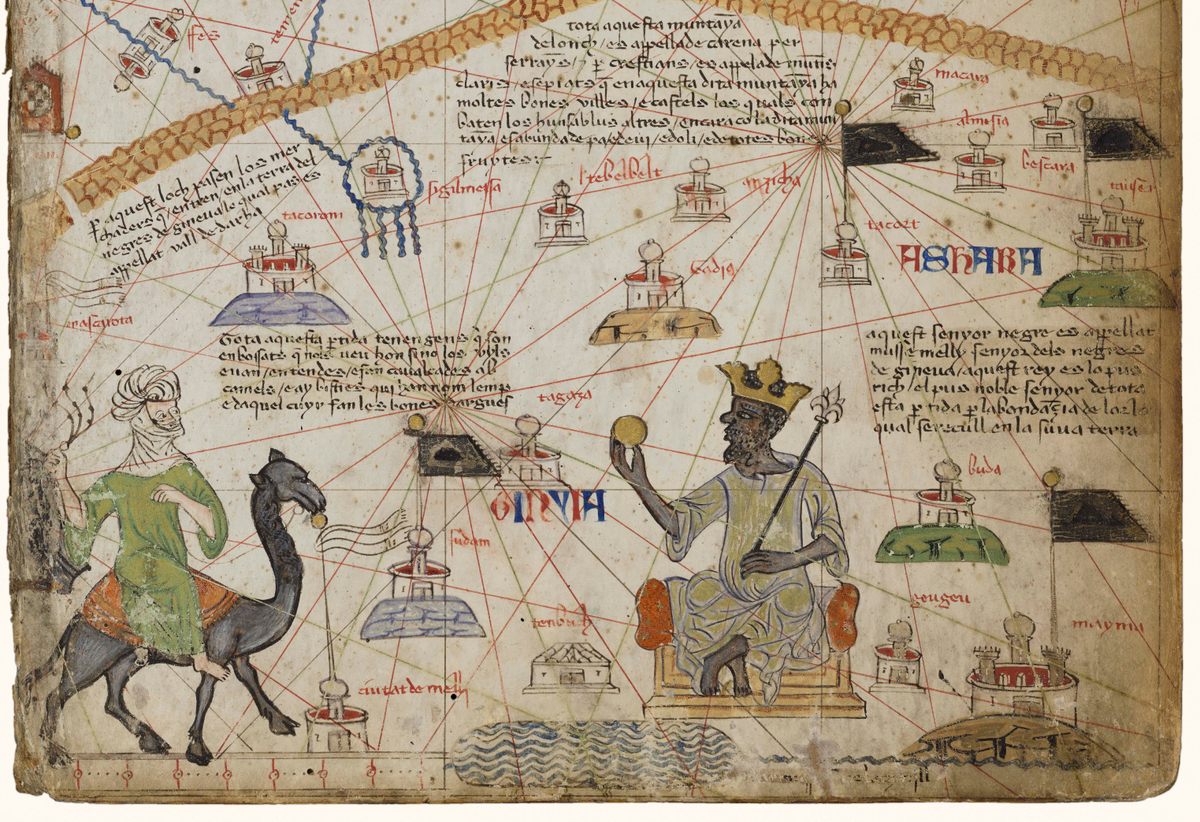 fes
tota aquesta muntaya
delonch / es appellade carena per
serrayns / ⁊ p crestians / es apelade muns
claris / esepiats q̄ enaquesta dita muntaya ha
moltes bones villes / e castels los quals con
baten los huns ab los altres / encara con la dita mun
taya es abunda de pa e de vi / e doli / e de totes bones
fruytes
macara
almisia
bescara
P aquest loch pasen los mer
chaders q̄ entren en la terra del
negres de gineua lo qual pas es
appellat vall de darha
sigilmessa
tacorom
tebelbelt
anzicha
tacort
ASHARA
Tota aquesta ptida tenen gens q̄ son
enbossats q̄ nols veu hom sino los uyls
e van en tendes / e fan caualcades ab
camels / e ay bisties qui han nom lemp
e daquel cuyr fan les bones dargues
aquest senyor negre es appellat
musse melly senyor dels negres
de gineua / aquest rey es lo pus
rich / el pus noble senyor de tota
esta ptida p labondazia de lor lo
qual se recull en la suua terra
tagaza
buda
GINYIA
sudam
tenbuch
geugeu
mayma
ciutat de melli